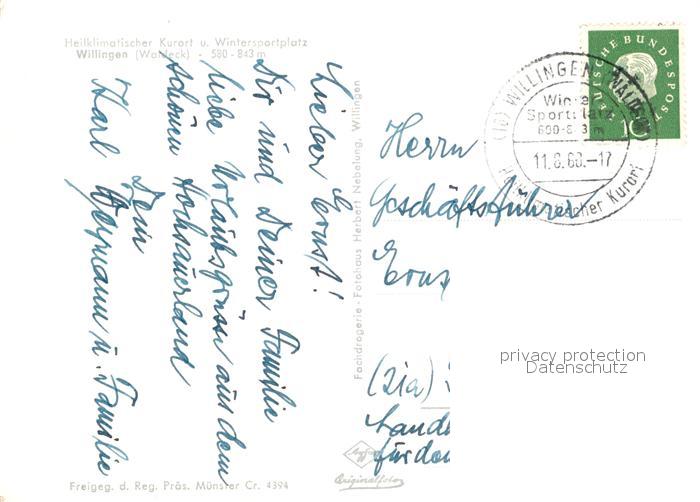 Heilklimatischer Kurort u. Wintersportplatz
Willingen (Waldeck) - 580-843 m
Lieber Ernst!
Dir und Deiner Familie
liebe Urlaubsgrüsse aus dem
schönen Hochsauerland
Dein
Karl u. Familie
Fachdrogerie - Fotohaus Herbert Nebelung, Willingen
DEUTSCHE BUNDESPOST
10
(16) WILLINGEN (WALDECK)
Winter
Sportplatz
600-843 m
11.8.60.-17
Heilklimatischer Kurort
Herrn
Geschäftsführer
(21a)
für den
privacy protection
Datenschutz
Agfa
Originalfoto
Freigeg. d. Reg. Präs. Münster Cr. 4394